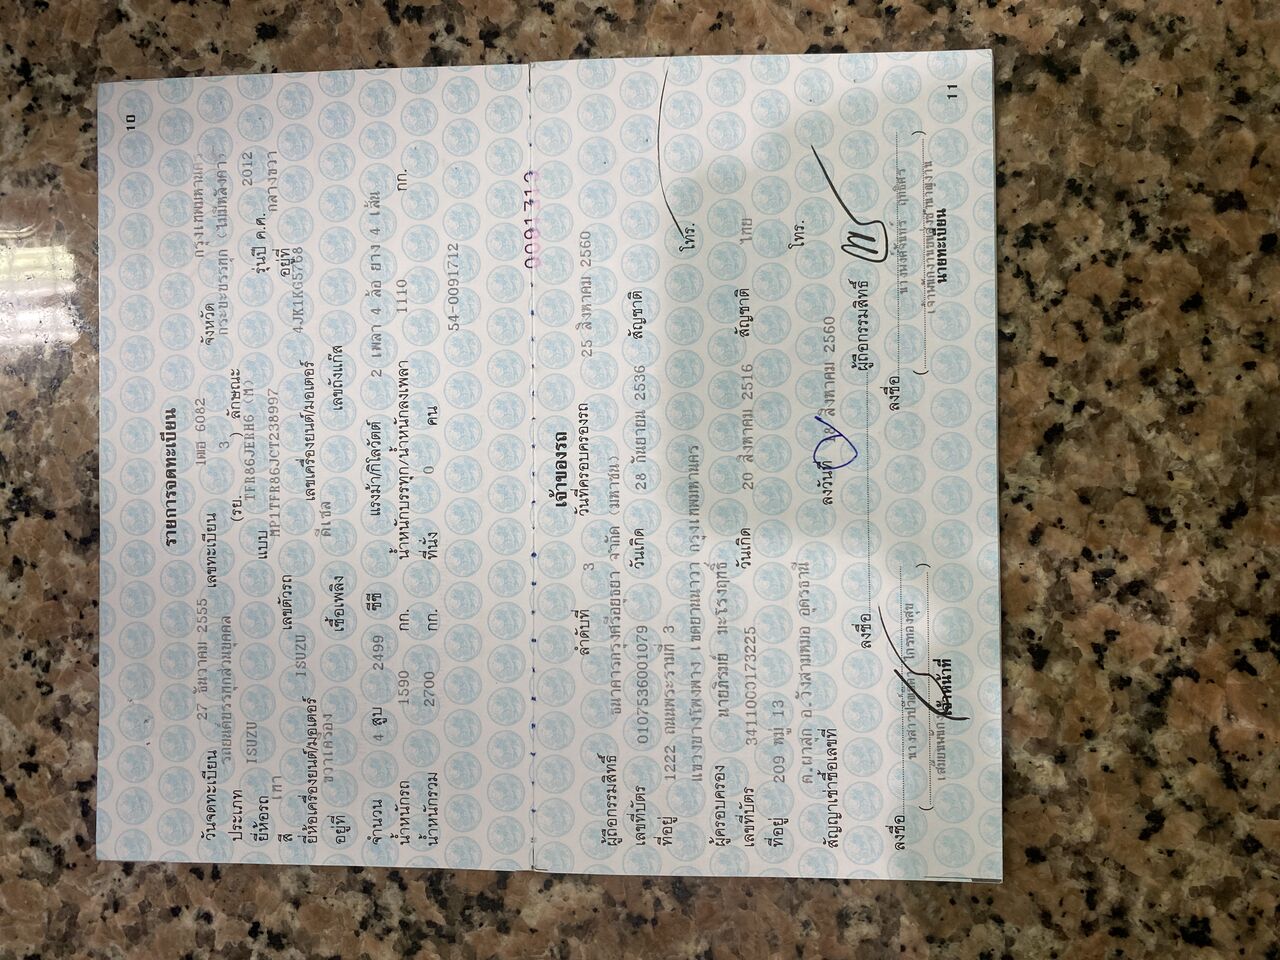 10
รายการจดทะเบียน
วันจดทะเบียน 27 ธันวาคม 2555 เลขทะเบียน 1ฒฮ 6082 จังหวัด กรุงเทพมหานคร
ประเภท รถยนต์บรรทุกส่วนบุคคล (รย. 3 ) ลักษณะ กระบะบรรทุก (ไม่มีหลังคา)
ยี่ห้อรถ ISUZU แบบ TFR86JERH6 (M) รุ่นปี ค.ศ. 2012
สี เทา เลขตัวรถ MP1TFR86JCT238997 อยู่ที่ กลางขวา
ยี่ห้อเครื่องยนต์/มอเตอร์ ISUZU เลขเครื่องยนต์/มอเตอร์ 4JK1KG5768
อยู่ที่ ขวาเครื่อง เชื้อเพลิง ดีเซล เลขถังแก๊ส
จำนวน 4 สูบ 2499 ซีซี แรงม้า/กิโลวัตต์ 2 เพลา 4 ล้อ ยาง 4 เส้น
น้ำหนักรถ 1590 กก. น้ำหนักบรรทุก/น้ำหนักลงเพลา 1110 กก.
น้ำหนักรวม 2700 กก. ที่นั่ง 0 คน
54-0091712
0091713
เจ้าของรถ
ลำดับที่ 3 วันที่ครอบครองรถ 25 สิงหาคม 2560
ผู้ถือกรรมสิทธิ์ ธนาคารกรุงศรีอยุธยา จำกัด (มหาชน)
เลขที่บัตร 0107536001079 วันเกิด 28 กันยายน 2536 สัญชาติ
ที่อยู่ 1222 ถนนพระรามที่ 3
แขวงบางโพงพาง เขตยานนาวา กรุงเทพมหานคร โทร.
ผู้ครอบครอง นายภิรมย์ มะโรงฤทธิ์
เลขที่บัตร 3411000173225 วันเกิด 20 สิงหาคม 2516 สัญชาติ ไทย
ที่อยู่ 209 หมู่ 13
ต.ผาสุก อ.วังสามหมอ อุดรธานี โทร.
สัญญาเช่าซื้อเลขที่ ลงวันที่ 18 สิงหาคม 2560
ลงชื่อ ผู้ถือกรรมสิทธิ์
ลงชื่อ ลงชื่อ
( ) ( )
เจ้าหน้าที่ นายทะเบียน
11